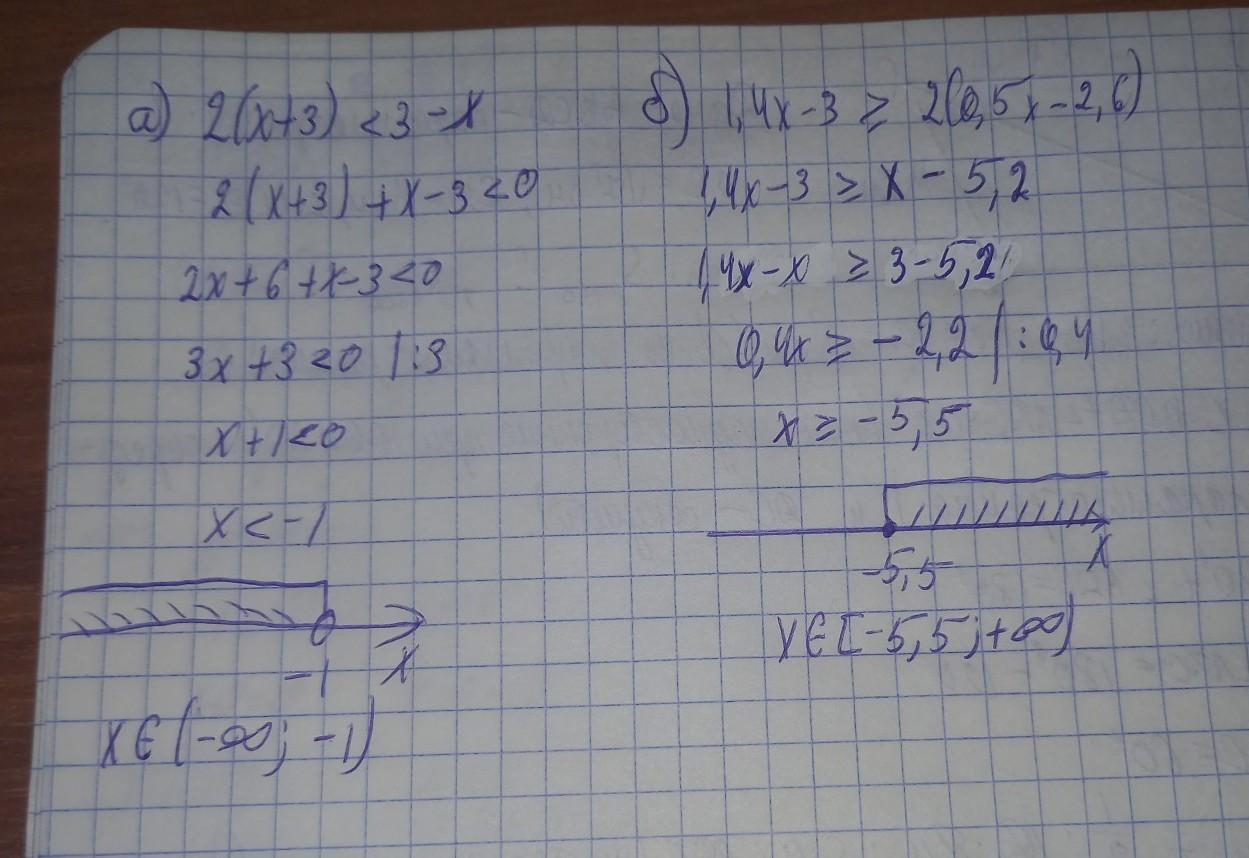 а) 2(x+3) < 3 - x
2(x+3) + x - 3 < 0
2x + 6 + x - 3 < 0
3x + 3 < 0 | : 3
x + 1 < 0
x < -1
-1 x
x ∈ (-∞; -1)
б) 1,4x - 3 ≥ 2(0,5x - 2,6)
1,4x - 3 ≥ x - 5,2
1,4x - x ≥ 3 - 5,2
0,4x ≥ - 2,2 | : 0,4
x ≥ -5,5
-5,5 x
x ∈ [-5,5; +∞)